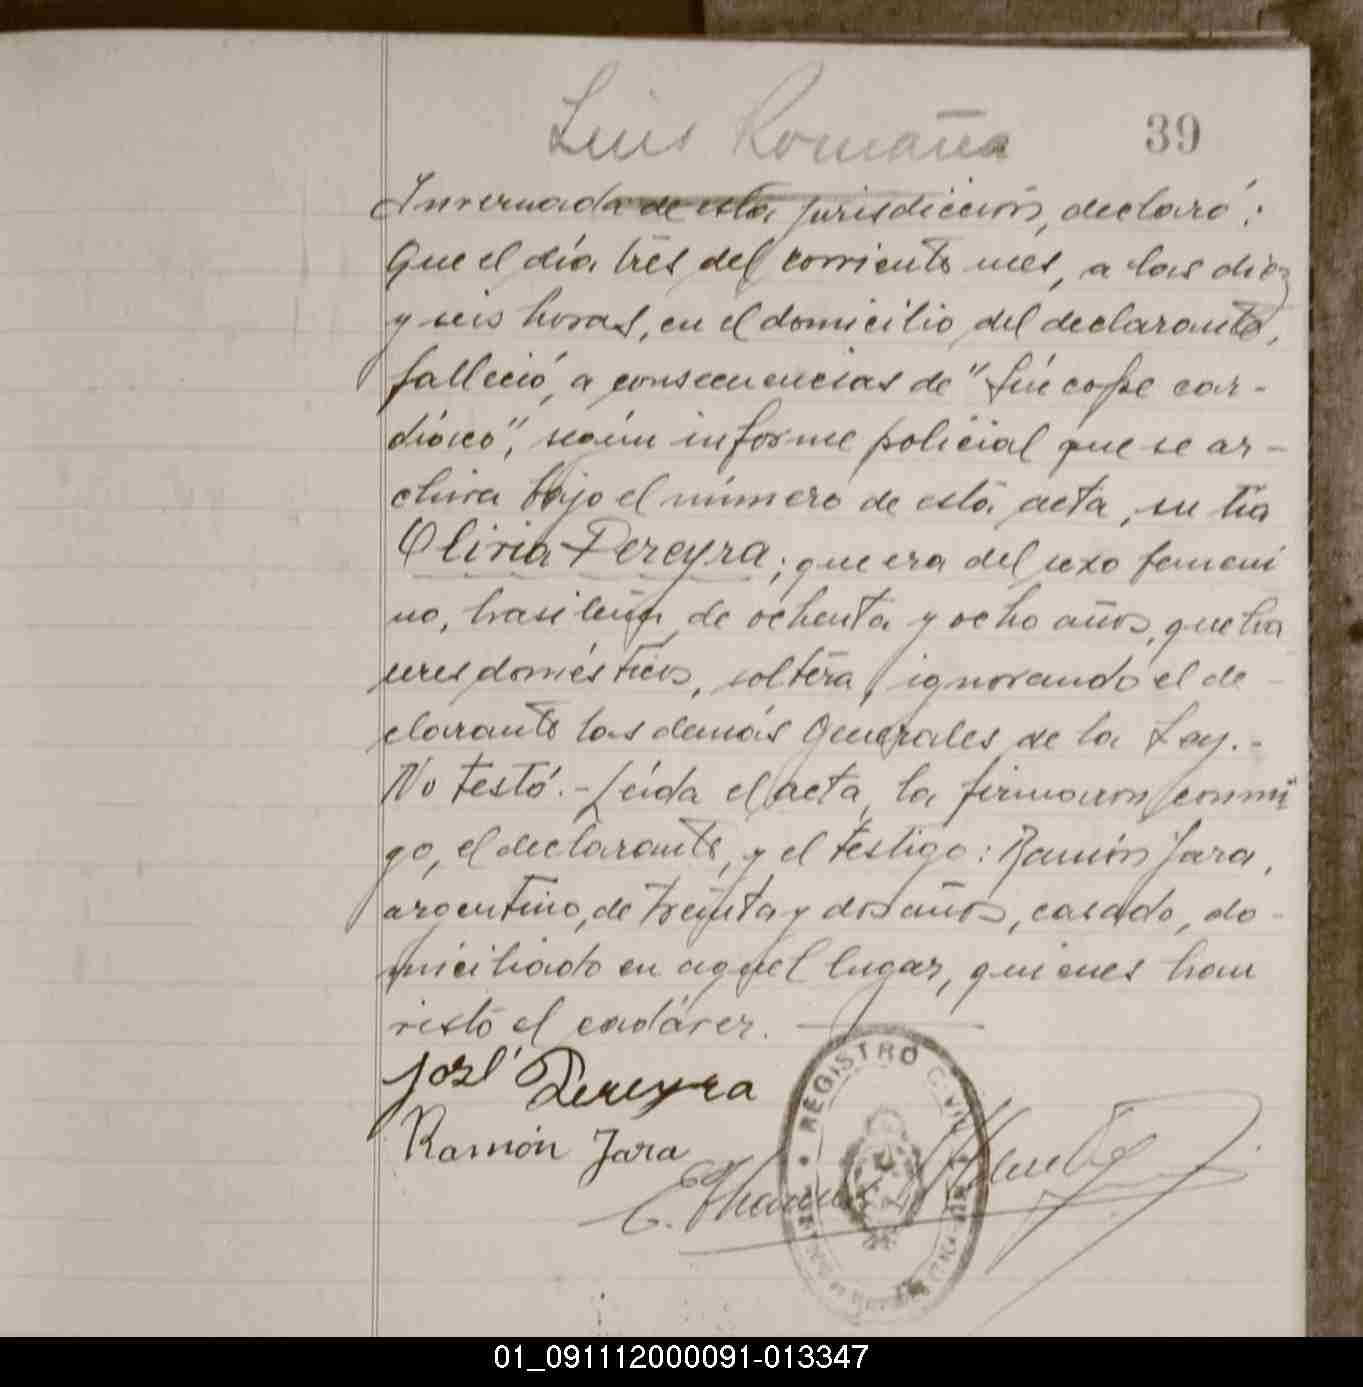 Luis Romaña
39
Invernada de esta jurisdicción, declaró:
Que el día tres del corriente mes, a las diez
y seis horas, en el domicilio del declarante,
falleció, a consecuencias de "Síncope car-
díaco", según informe policial que se ar-
chiva bajo el número de esta acta, su tía
Olivia Pereyra; que era del sexo femeni
no, brasileña, de ochenta y ocho años, queha
ceres domésticos, soltera, ignorando el de-
clarante las demás Generales de la Ley.-
No testó.- Leída el acta, la firmaron conmi
go, el declarante, y el testigo: Ramón Jara,
argentino, de treinta y dos años, casado, do-
miciliado en aquel lugar, quienes han
visto el cadáver.
José Pereyra
Ramón Jara
REGISTRO CIVIL
01_091112000091-013347